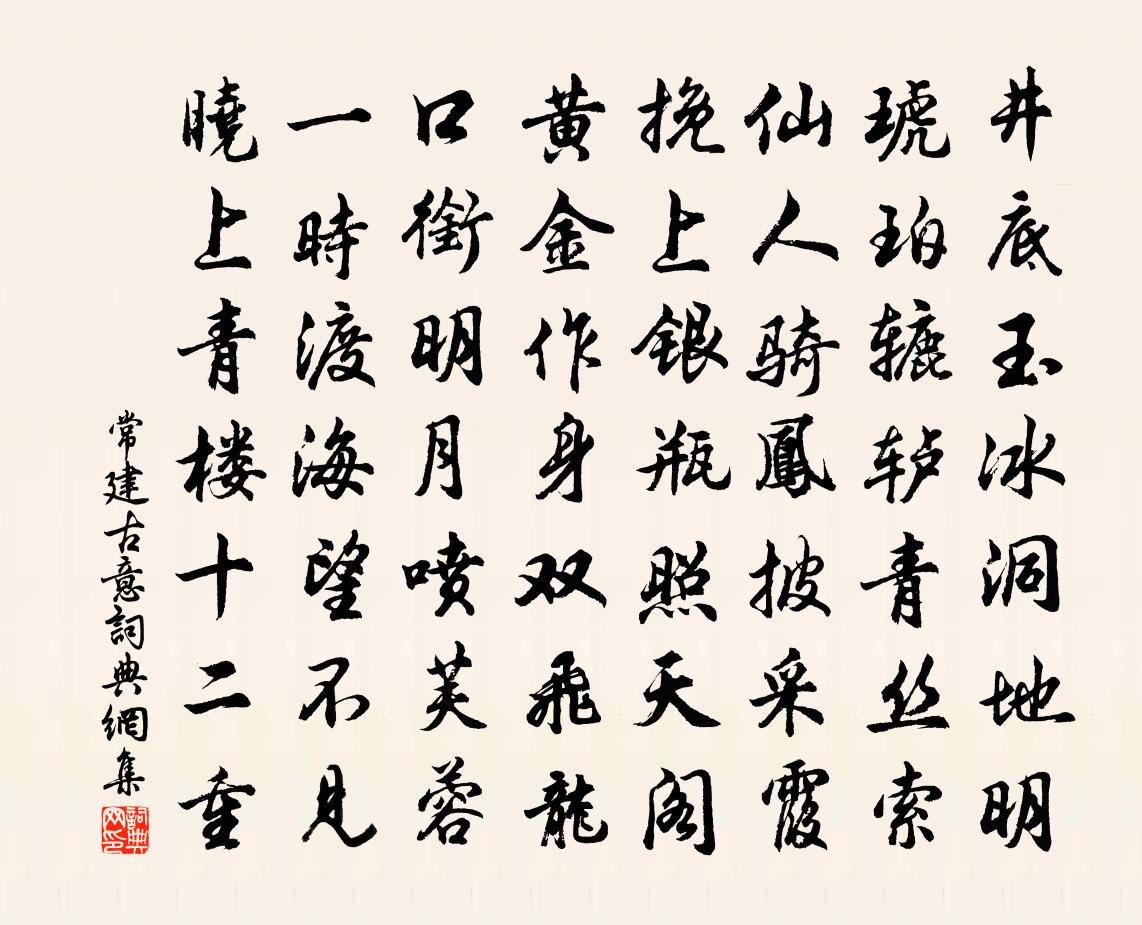 井底玉冰洞地明
琥珀辘轳青丝索
仙人骑鳳披采霞
挽上银瓶照天阁
黄金作身双飛龍
口銜明月喷芙蓉
一時渡海望不見
曉上青楼十二重
常建古意詞典網集
詞典网印